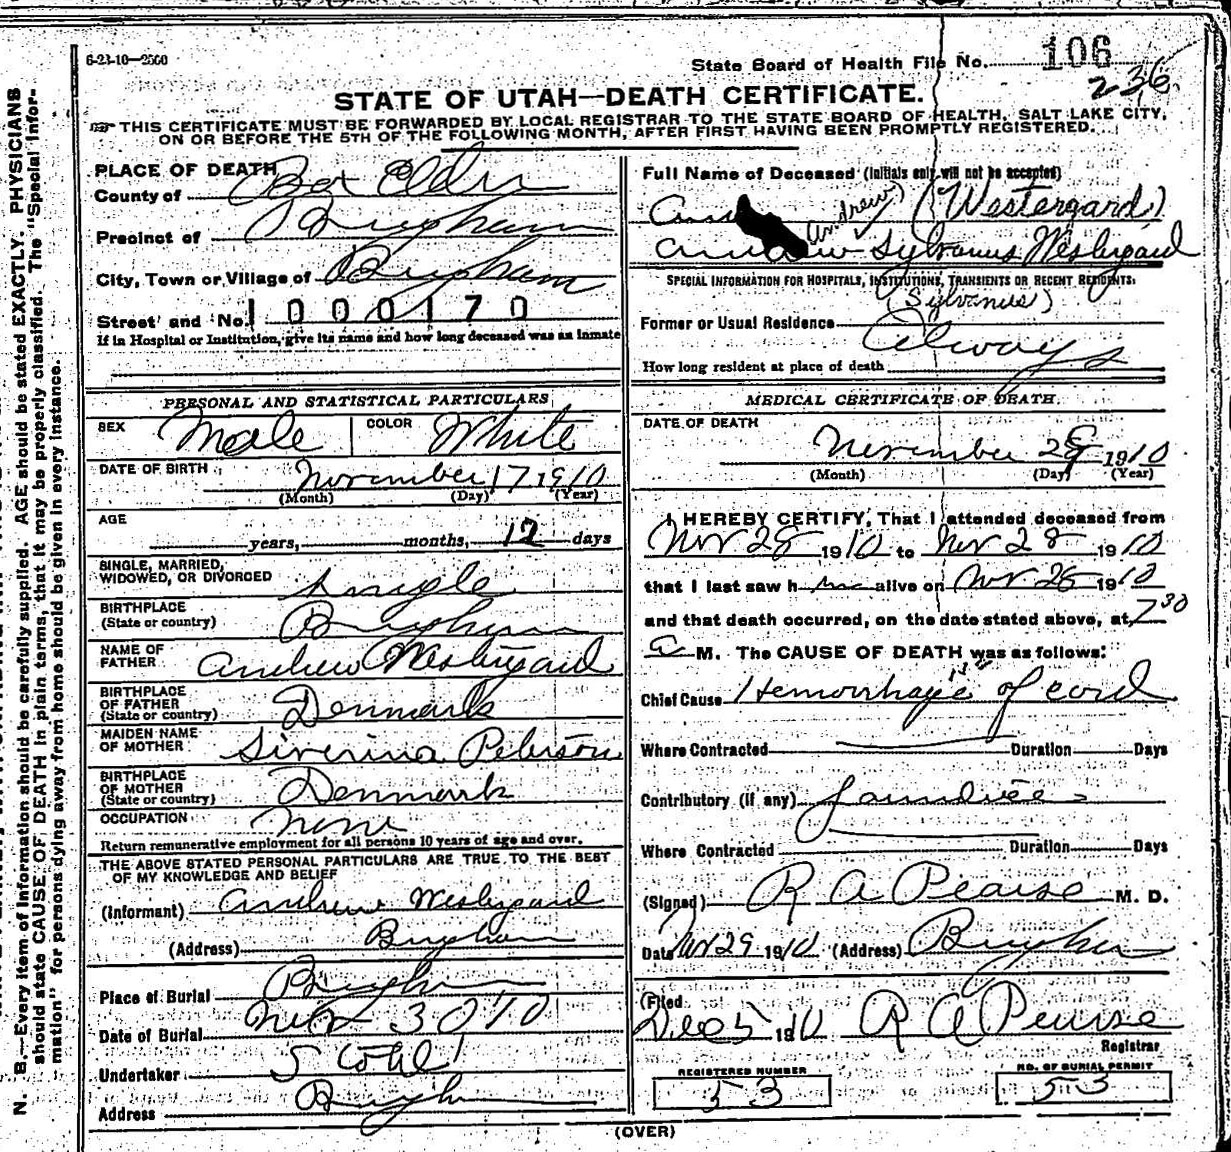 6-23-10—2500
State Board of Health File No. 106
236
STATE OF UTAH—DEATH CERTIFICATE.
THIS CERTIFICATE MUST BE FORWARDED BY LOCAL REGISTRAR TO THE STATE BOARD OF HEALTH, SALT LAKE CITY,
ON OR BEFORE THE 5TH OF THE FOLLOWING MONTH, AFTER FIRST HAVING BEEN PROMPTLY REGISTERED.
PLACE OF DEATH
County of Box Elder
Precinct of Brigham
City, Town or Village of Brigham
Street and No. 1000170
If in Hospital or Institution, give its name and how long deceased was an inmate
PERSONAL AND STATISTICAL PARTICULARS
SEX Male COLOR White
DATE OF BIRTH November 17 1910
(Month) (Day) (Year)
AGE
years, months, 12 days
SINGLE, MARRIED,
WIDOWED, OR DIVORCED Single
BIRTHPLACE
(State or country) Brigham
NAME OF
FATHER Andrew Westergard
BIRTHPLACE
OF FATHER
(State or country) Denmark
MAIDEN NAME
OF MOTHER Siverina Peterson
BIRTHPLACE
OF MOTHER
(State or country) Denmark
OCCUPATION none
Return remunerative employment for all persons 10 years of age and over.
THE ABOVE STATED PERSONAL PARTICULARS ARE TRUE TO THE BEST
OF MY KNOWLEDGE AND BELIEF
(Informant) Andrew Westergard
(Address) Brigham
Place of Burial Brigham
Date of Burial Nov 30 10
Undertaker
Address Brigham
Full Name of Deceased (Initials only will not be accepted)
(Andrew) (Westergard)
Sylvanus Westergard
SPECIAL INFORMATION FOR HOSPITALS, INSTITUTIONS, TRANSIENTS OR RECENT RESIDENTS:
(Sylvanus)
Former or Usual Residence
Always
How long resident at place of death
MEDICAL CERTIFICATE OF DEATH
DATE OF DEATH
November 28 1910
(Month) (Day) (Year)
I HEREBY CERTIFY, That I attended deceased from
Nov 28 1910 to Nov 28 1910
that I last saw him alive on Nov 28 1910
and that death occurred, on the date stated above, at 7 30
a M. The CAUSE OF DEATH was as follows:
Chief Cause Hemorrhage of cord
Where Contracted Duration Days
Contributory (if any) Jaundice
Where Contracted Duration Days
(Signed) R A Pearse M. D.
Date Nov 29 1910 (Address) Brigham
Filed
Dec 5 1910 R A Pearse
Registrar
REGISTERED NUMBER
53
NO. OF BURIAL PERMIT
53
(OVER)
N. B.—Every item of information should be carefully supplied. AGE should be stated EXACTLY. PHYSICIANS
should state CAUSE OF DEATH in plain terms, that it may be properly classified. The "Special Infor-
mation" for persons dying away from home should be given in every instance.